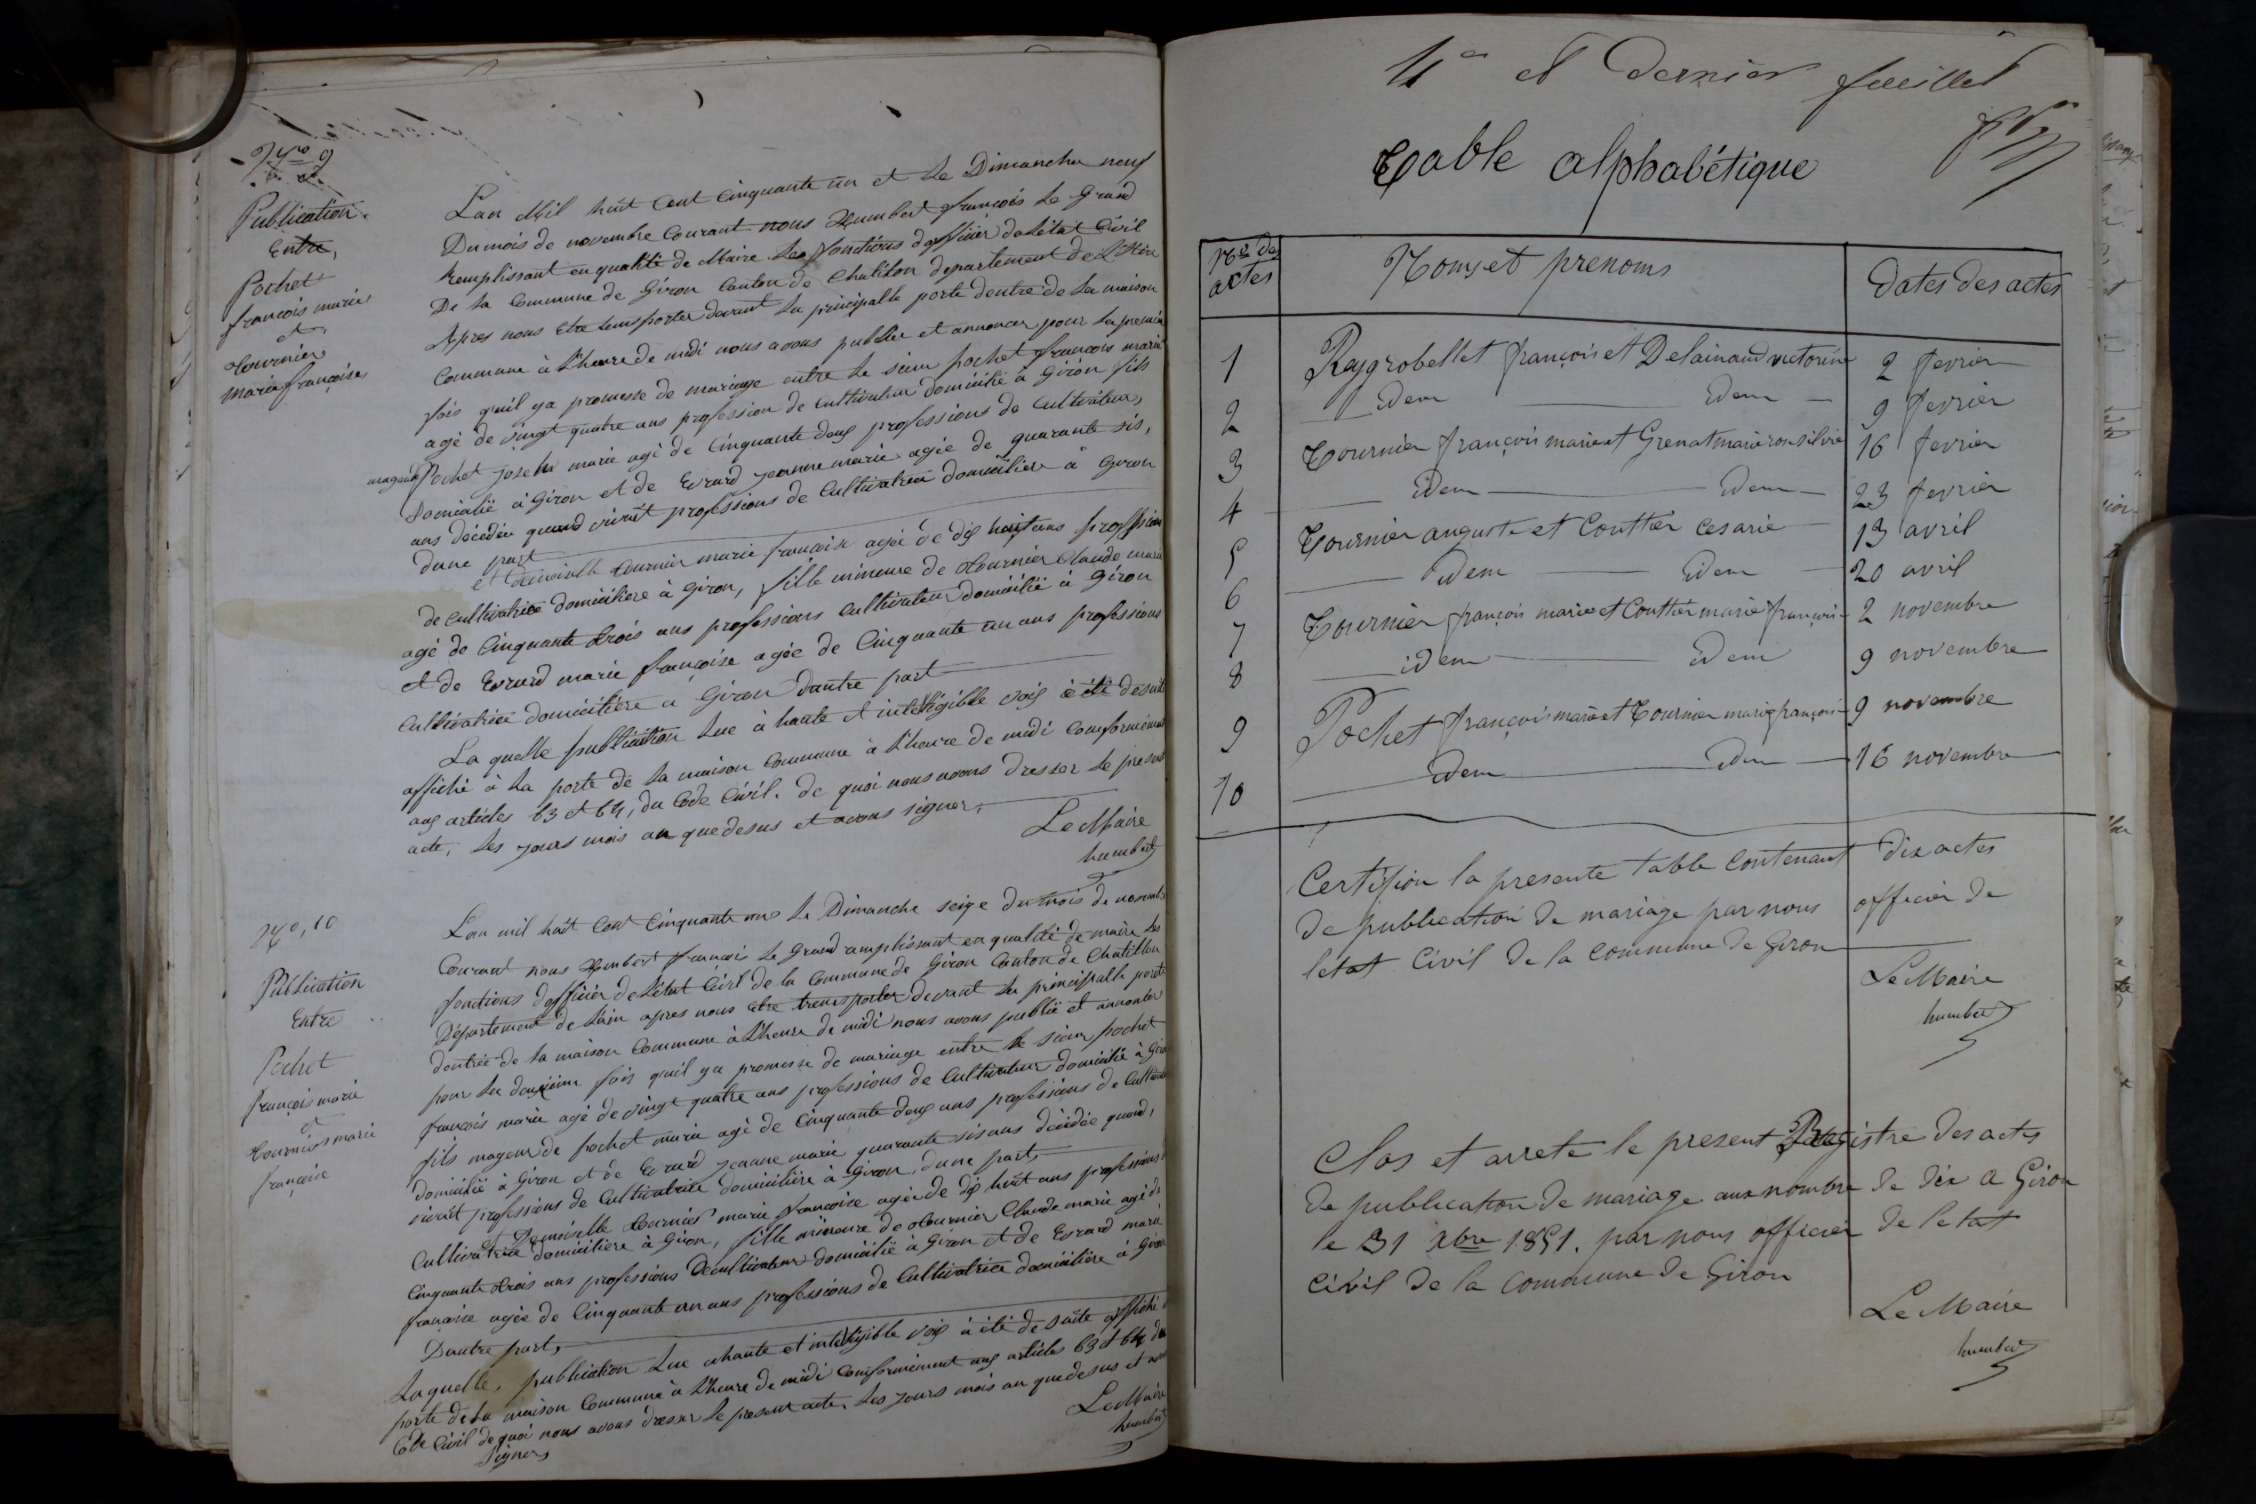 Nro 9
Publication
Entre,
Pochet
françois marie
et
tournier
marie françoise
Lan Mil huit Cent Cinquante un et le Dimanche neuf
Du mois de novembre Courant nous Humbert françois le Grand
Remplissant en qualité de Maire les fonctions d'officier de l'état Civil
De la Commune de Giron Canton de Chatillon departement de L'Ain
Apres nous etre transporter devant la principalle porte dentre de la maison
Commune à l'heure de midi nous avons publier et annoncer pour la premier
fois qu'il ya promesse de mariage entre le sieur pochet françois marie
agé de vingt quatre ans profession de cultivateur domicilié à Giron fils
Pochet joseph marie agé de Cinquante deux professions de cultivateur,
domicilié à Giron et de Evrard jeanne marie agée de quarante sis,
ans décédée quand vivût professions de Cultivatrice domicilière à Giron
dune part
et Demoiselle tournier marie françoise agée de dix huit ans profession
de cultivatrice domicilière à Giron, fille mineure de tournier Claude marie
agé de Cinquante trois ans professions cultivateur domicilié à Giron
et de Evrard marie françoise agée de Cinquante un ans professions
Cultivatrice domicilière a Giron dautre part
La quelle publication lue à haute et intelligible voix à été desuite
affiché à la porte de la maison Commune à l'heure de midi Conformément
aux articles 63 et 64, du Code Civil. de quoi nous avons dresser le present
acte, les jours mois an que desus et avons signer,
Le Maire
humbert
No, 10
Publication
Entre
Pochet
françois marie
et
tournier marie
françoise
Lan mil huit Cent Cinquante un le Dimanche seize du mois de novembre
Courant nous Humbert françois le Grand remplissant en qualité de maire les
fonctions d'officier de l'état Civil de la Commune de Giron Canton de Chatillon
Département de lain apres nous etre transporter devant la principalle porte
dentrée de la maison Commune à l'heure de midi nous avons publié et annoncer
pour la deuxieme fois quil ya promesse de mariage entre le sieur pochet
françois marie agé de vingt quatre ans professions de Cultivateur domicilié à Giron
fils mageur de pochet marie agé de Cinquante deux ans professions de Cultivateur
domicilié à Giron et de Evrard jeanne marie quarante sis ans décédée quand,
vivût professions de Cultivatrice domicilière à Giron, dune part,
et Demoiselle tournier marie françoise agée de dix huit ans professions
Cultivatrice domicilière à Giron, fille mineure de tournier Claude marie agé de
Cinquante trois ans professions de cultivateur domicilié à Giron et de Evrard marie
françoise agée de Cinquante un ans professions de Cultivatrice domicilière à Giron
Dautre part,
Laquelle, publication lue ahaute et intelligible voix à été de suite affiché
porte de la maison Commune à l'heure de midi Conformément aux articles 63 et 64 du
Code Civil de quoi nous avons dresser le present acte les jours mois an que desus et avons
signer,
Le Maire
humbert
4e et dernier feuillet
Table alphabétique
Nos des actes
Noms et prenoms
Dates des actes
1 Raygrobellet françois et Delainaud victorine 2 fevrier
2 idem idem 9 fevrier
3 Tournier françois marie et Grenat marie 16 fevrier
4 idem idem 23 fevrier
5 Tournier auguste et Couttier cesarie 13 avril
6 idem idem 20 avril
7 Tournier françois marie et Couttier marie françoise 2 novembre
8 idem idem 9 novembre
9 Pochet françois marie et Tournier marie françoise 9 novembre
10 idem idem 16 novembre
Certifion la presente table Contenant dix actes
de publication de mariage par nous officier de
letat Civil de la Commune de Giron
Le Maire
humbert
Clos et arrete le present Registre des actes
de publication de mariage aux nombre de dix a Giron
le 31 xbre 1851. par nous officier de letat
civil de la commune de Giron
Le Maire
humbert